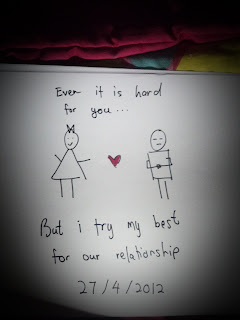 Even it is hard
for you...
But i try my best
for our relationship
27/4/2012